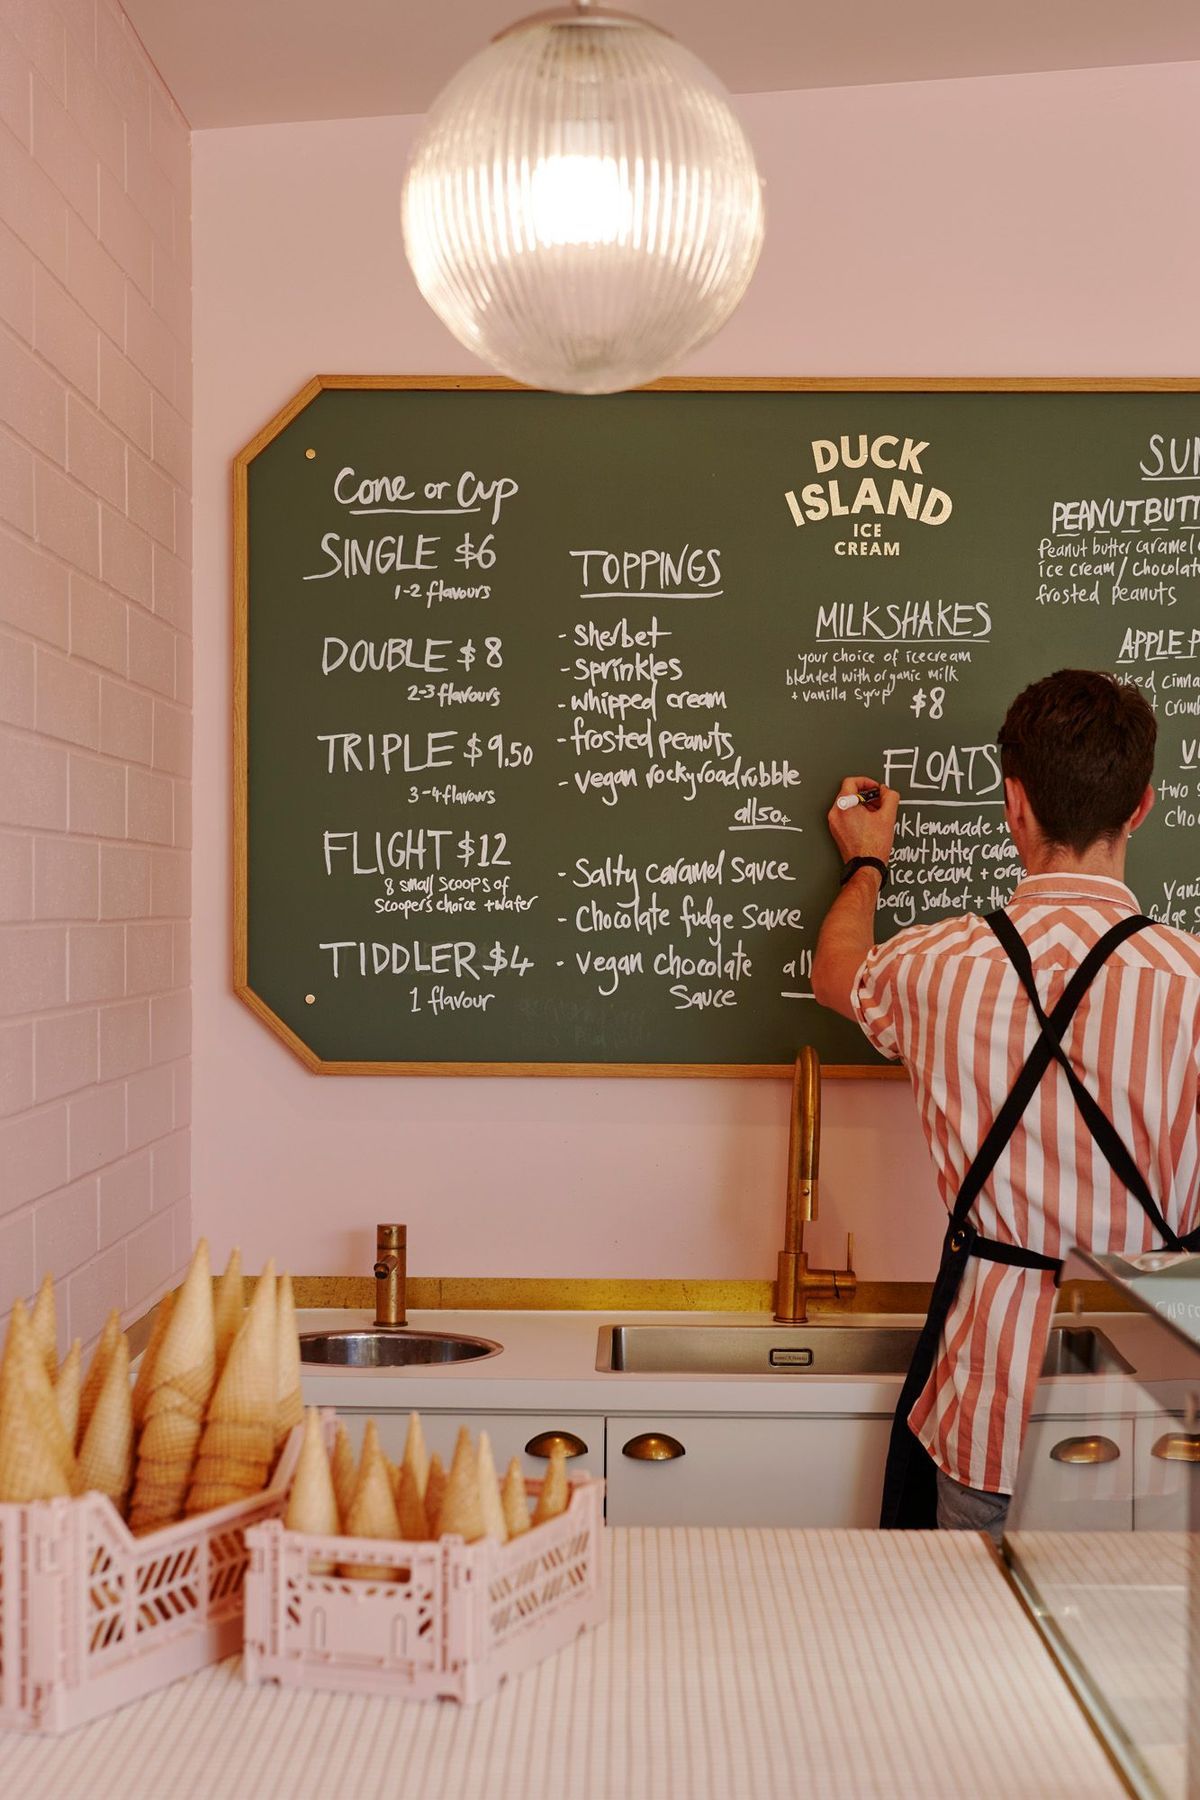 Cone or Cup
SINGLE $6
1-2 flavours
DOUBLE $8
2-3 flavours
TRIPLE $9.50
3-4 flavours
FLIGHT $12
8 small scoops of
Scoopers choice + wafer
TIDDLER $4
1 flavour
TOPPINGS
- sherbet
- sprinkles
- whipped cream
- frosted peanuts
- vegan rockyroad rubble
all 50¢
- Salty caramel Sauce
- Chocolate fudge Sauce
- vegan chocolate
Sauce
all
DUCK
ISLAND
ICE
CREAM
MILKSHAKES
your choice of icecream
blended with organic milk
+ vanilla syrup
$8
FLOATS
nk lemonade +
eanut butter caram
ice cream + orga
berry Sorbet +
SUN
PEANUT BUTT
Peanut butter caramel
ice cream / chocolat
frosted peanuts
APPLE P
oked cinna
crum
V
two s
choc
Vani
fudge s